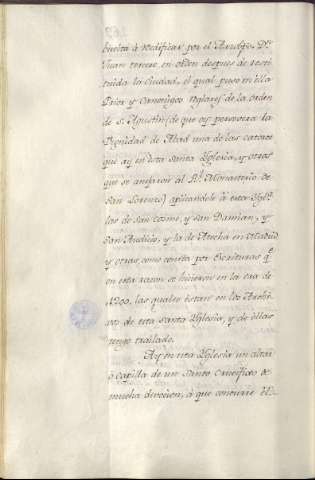 buelta à reedificar por el Arzobpo. Dn.
Juan tercero en orden despues de resti-
tuida la Ciudad, el qual puso en ella
Prior y Canonigos reglares de la orden
de S. Agustin (de que oy persevera la
Dignidad de Abad una de las catorce
que ay en esta Santa Yglesia, y otras
que se anejaron al Rl. Monasterio de
San Lorenzo) aplicandole à esta Ygla.
las de san Cosme, y san Damian, y
San Andres, y la de Atocha en Madrid
y otras, como consta por Escrituras qe.
en esta razon se hicieron en la era de
1200. las quales estan en los Archi-
vos de esta santa Yglesia, y de ellas
tengo traslado.
Ay en esta Yglesia un altar
ò capilla de un Santo Crucifixo de
mucha devocion, à que concurre el